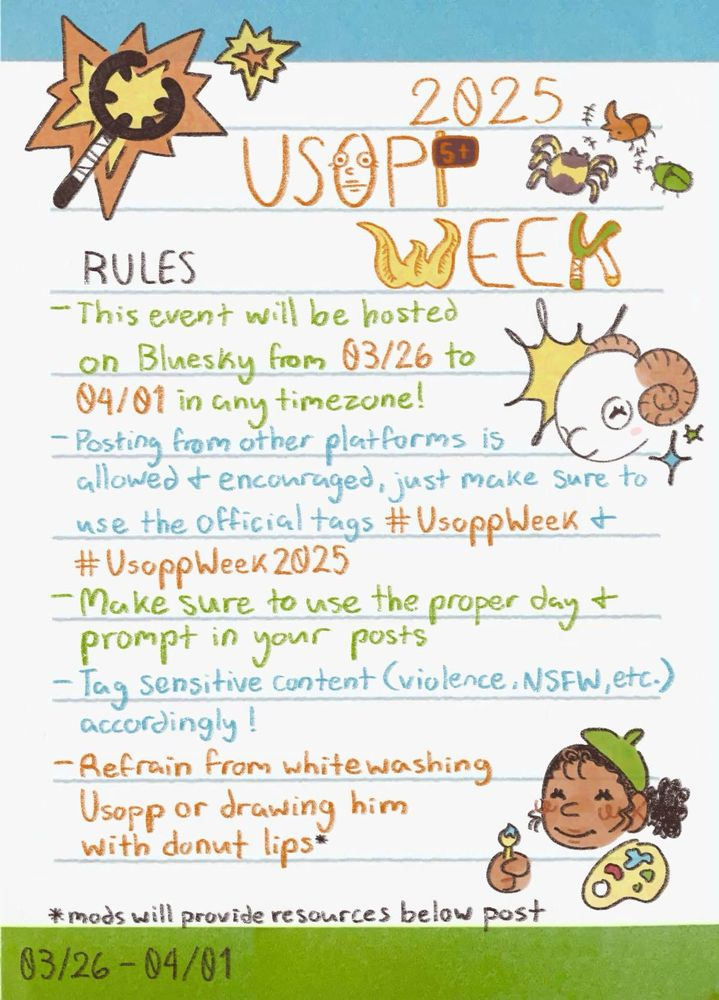 2025
USOPP
5+
WEEK
RULES
- This event will be hosted
on Bluesky from 03/26 to
04/01 in any timezone!
- Posting from other platforms is
allowed & encouraged, just make sure to
use the official tags #UsoppWeek &
#UsoppWeek2025
- Make sure to use the proper day &
prompt in your posts
- Tag sensitive content (violence, NSFW, etc.)
accordingly!
- Refrain from whitewashing
Usopp or drawing him
with donut lips*
*mods will provide resources below post
03/26 - 04/01